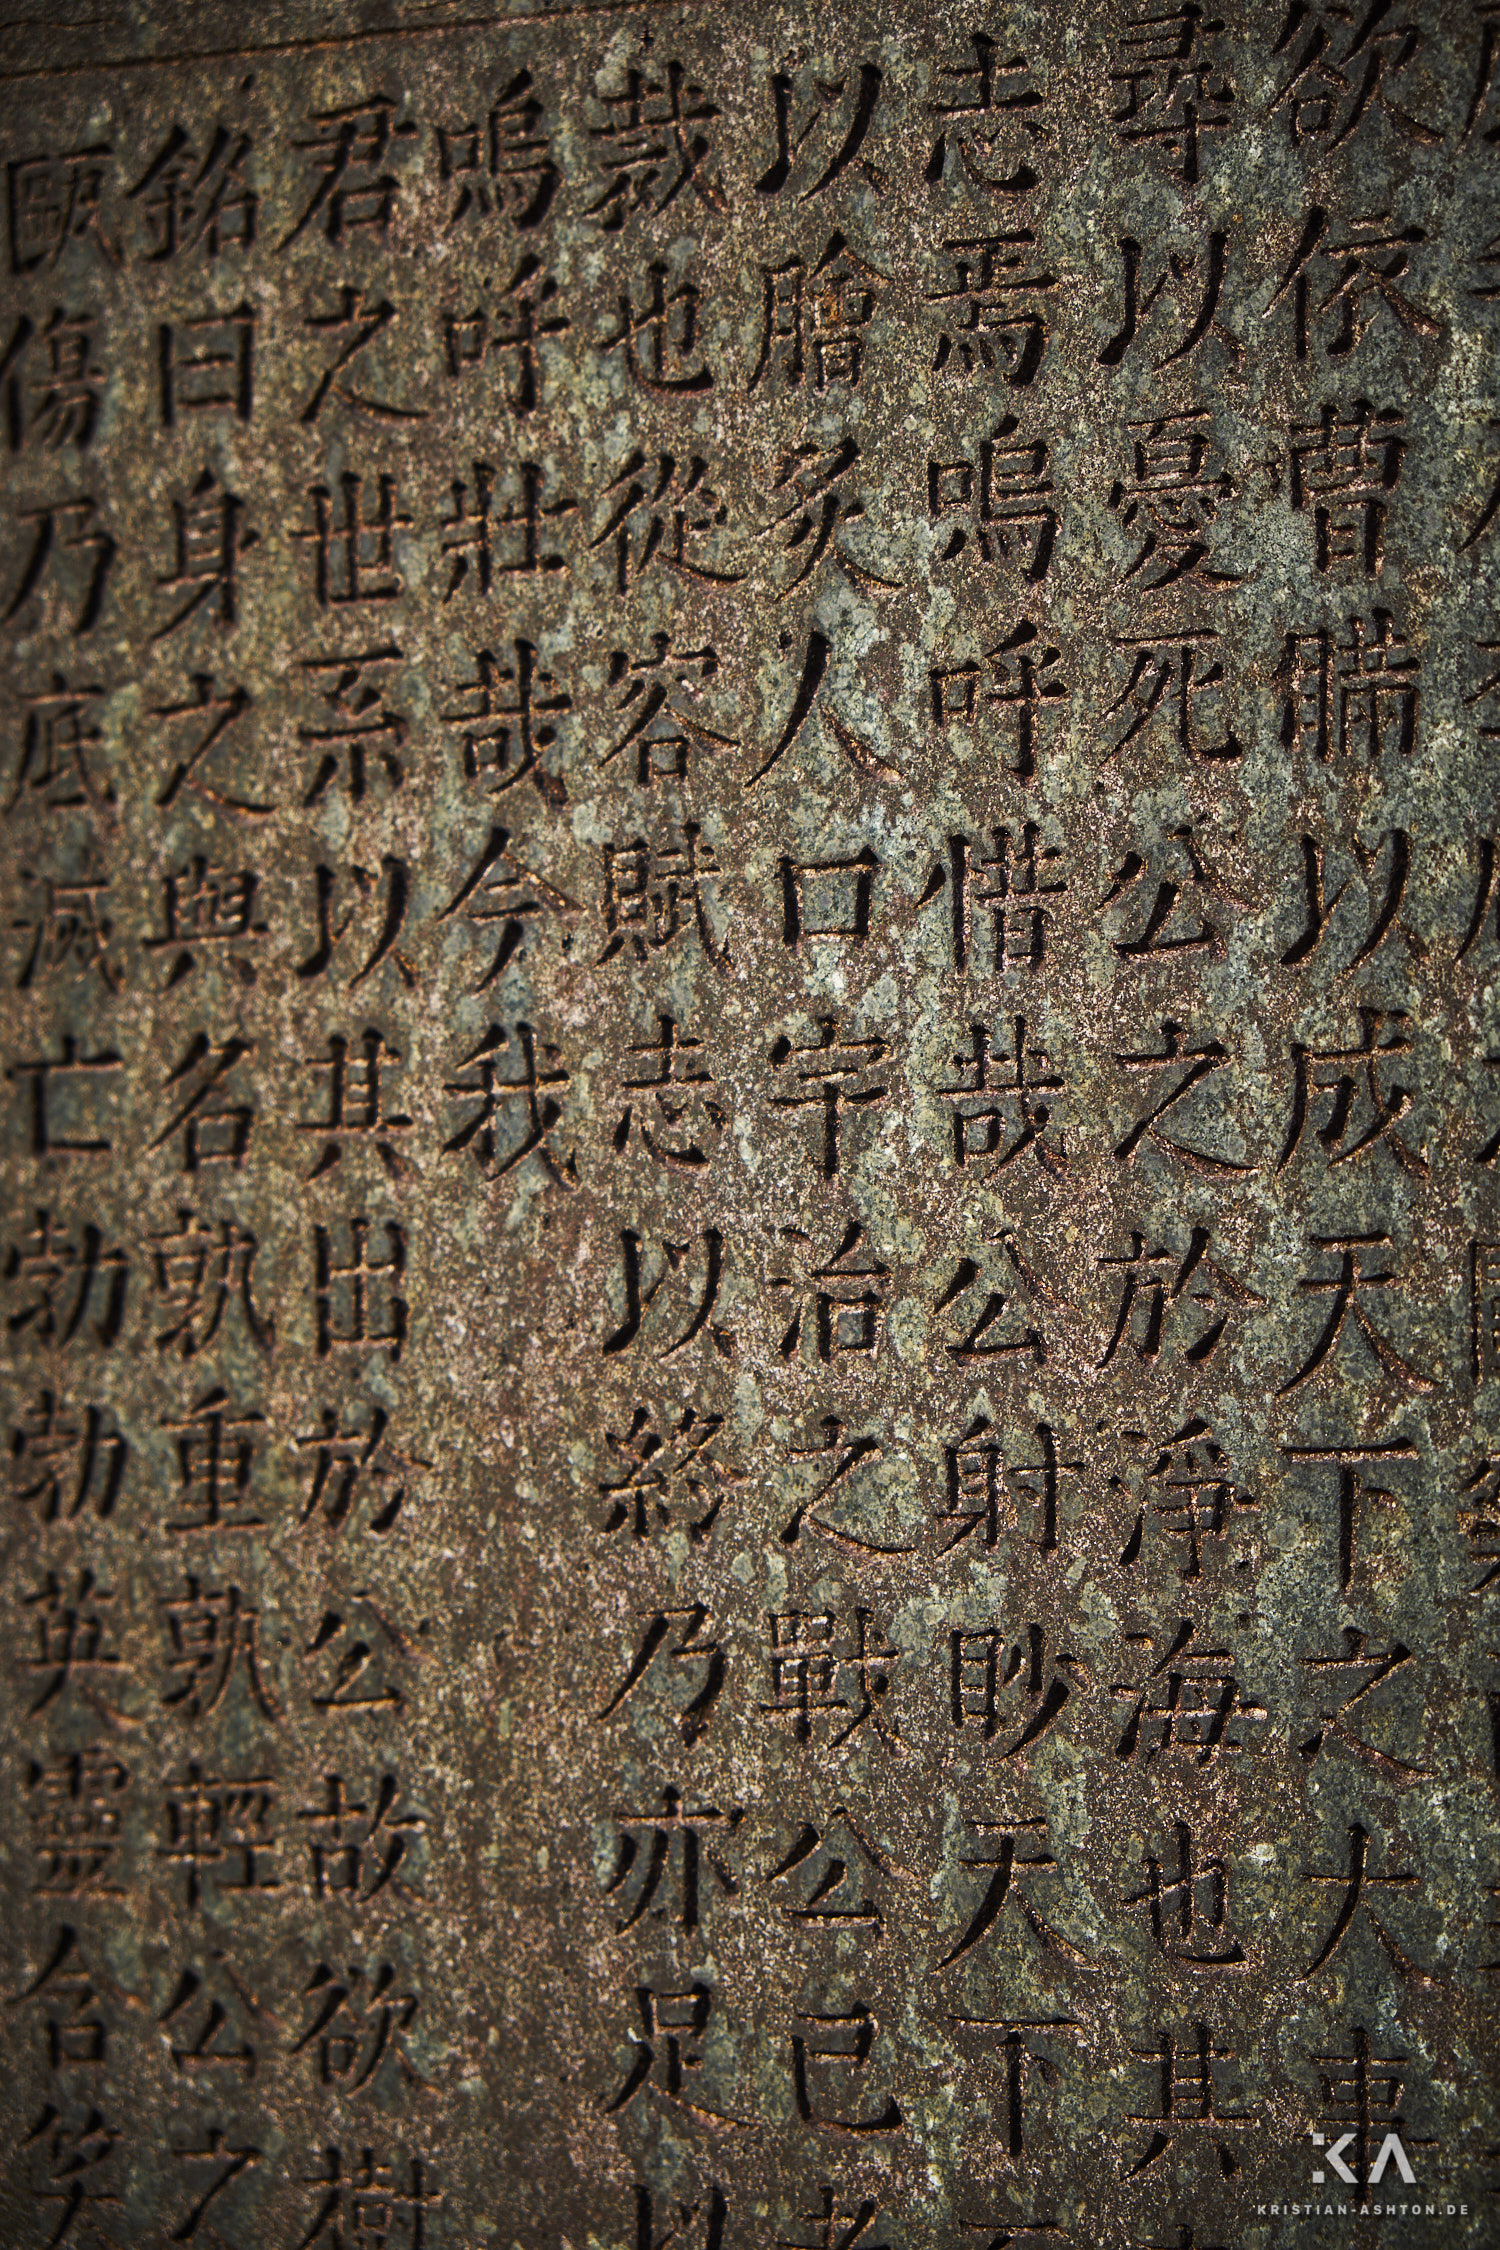 欲依曹瞞以成天下之大事
尋以憂死公之於淨海也其
志焉嗚呼惜哉公射眇天下
以膾炙人口宇治之戰公已老
裁也從容賦志以終乃亦足以
嗚呼壯哉今我
君之世系以其出於公故欲樹
銘曰身之與名孰重孰輕公之
傷乃底滅亡勃勃英靈含笑
KA
KRISTIAN-ASHTON.DE